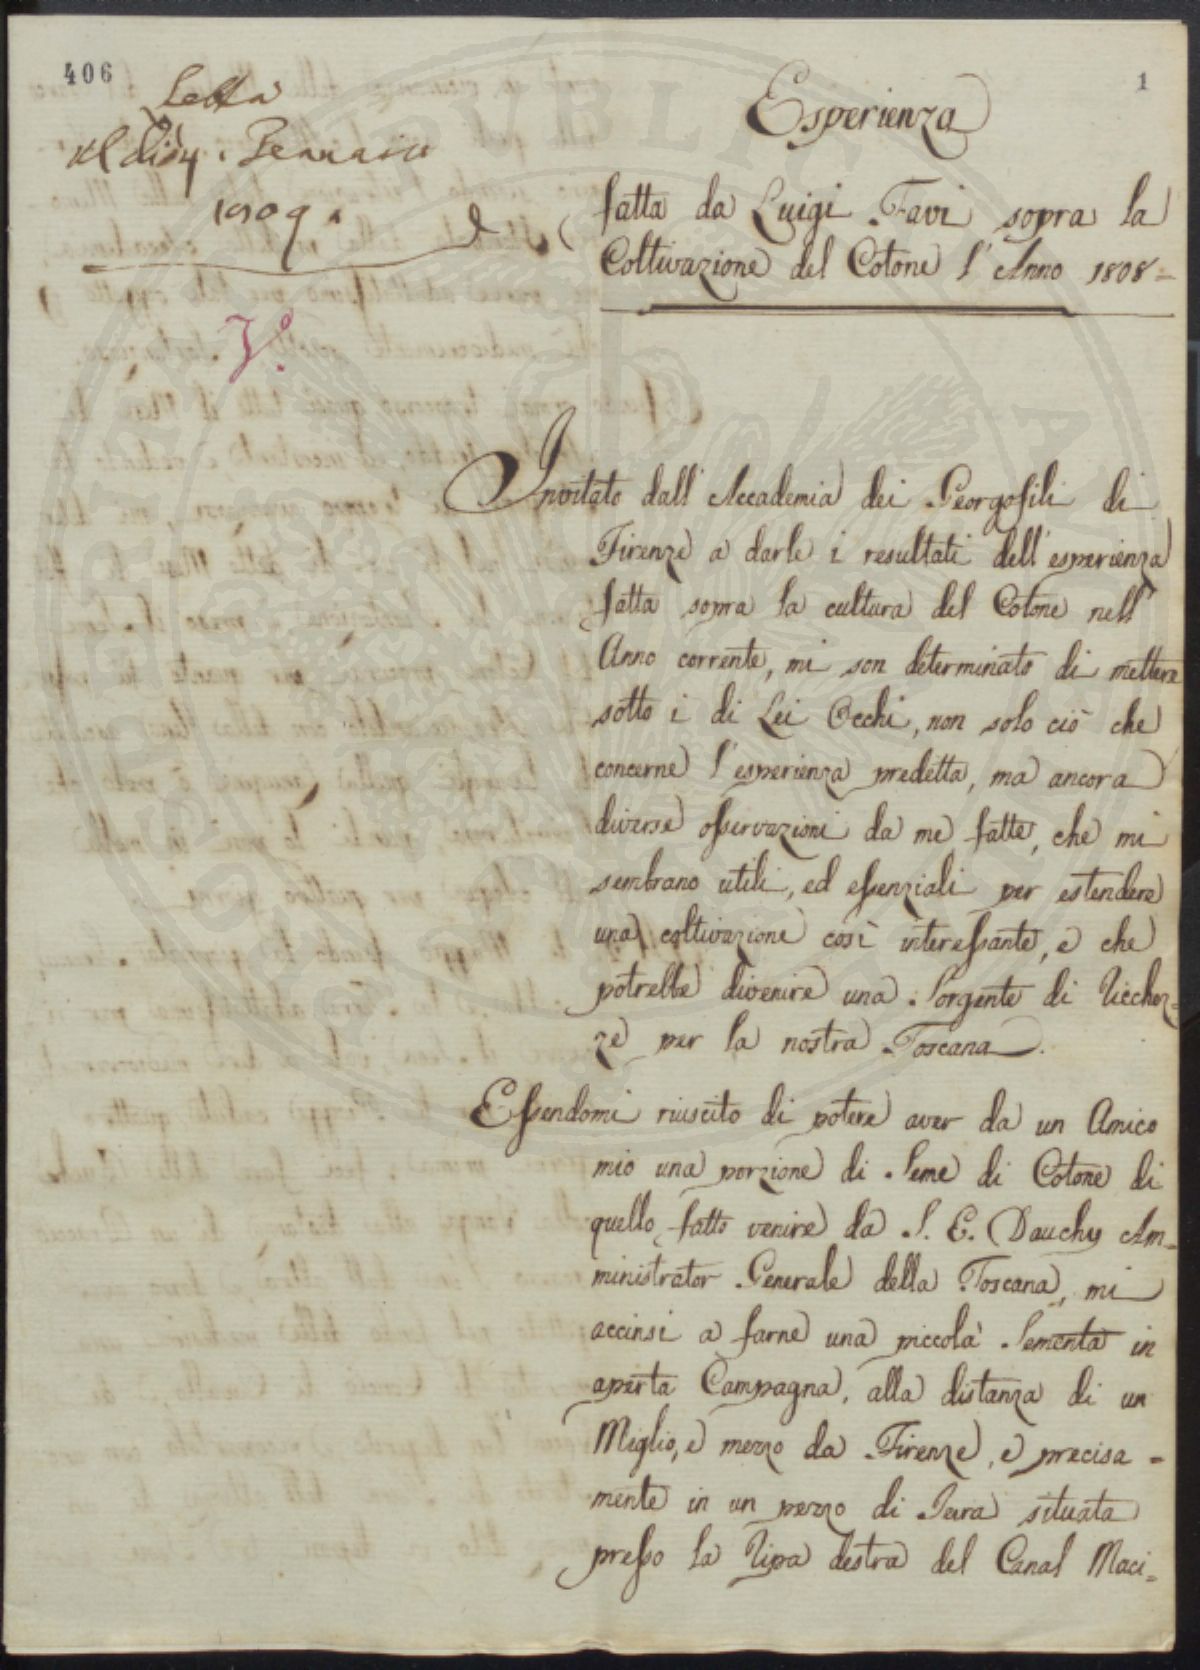 406
1
Letta
1809.
Esperienza
fatta da Luigi Favi sopra la
Coltivazione del Cotone l'Anno 1808=
Invitato dall'Accademia dei Georgofili di
Firenze a darle i resultati dell'esperienza
fatta sopra la cultura del Cotone nell'
Anno corrente, mi son determinato di mettere
sotto i di Lei Occhi, non solo ciò che
concerne l'esperienza predetta, ma ancora
diverse osservazioni da me fatte, che mi
sembrano utili, ed essenziali per estendere
una coltivazione così interessante, e che
potrebbe divenire una Sorgente di Ricchez-
ze per la nostra Toscana.
Essendomi riuscito di potere aver da un Amico
mio una porzione di Seme di Cotone di
quello fatto venire da S. E. Dauchy Am-
ministrator Generale della Toscana, mi
accinsi a farne una piccola Sementa in
aperta Campagna, alla distanza di un
Miglio, e mezzo da Firenze, e precisa=
mente in un pezzo di Terra situata
presso la Ripa destra del Canal Maci=